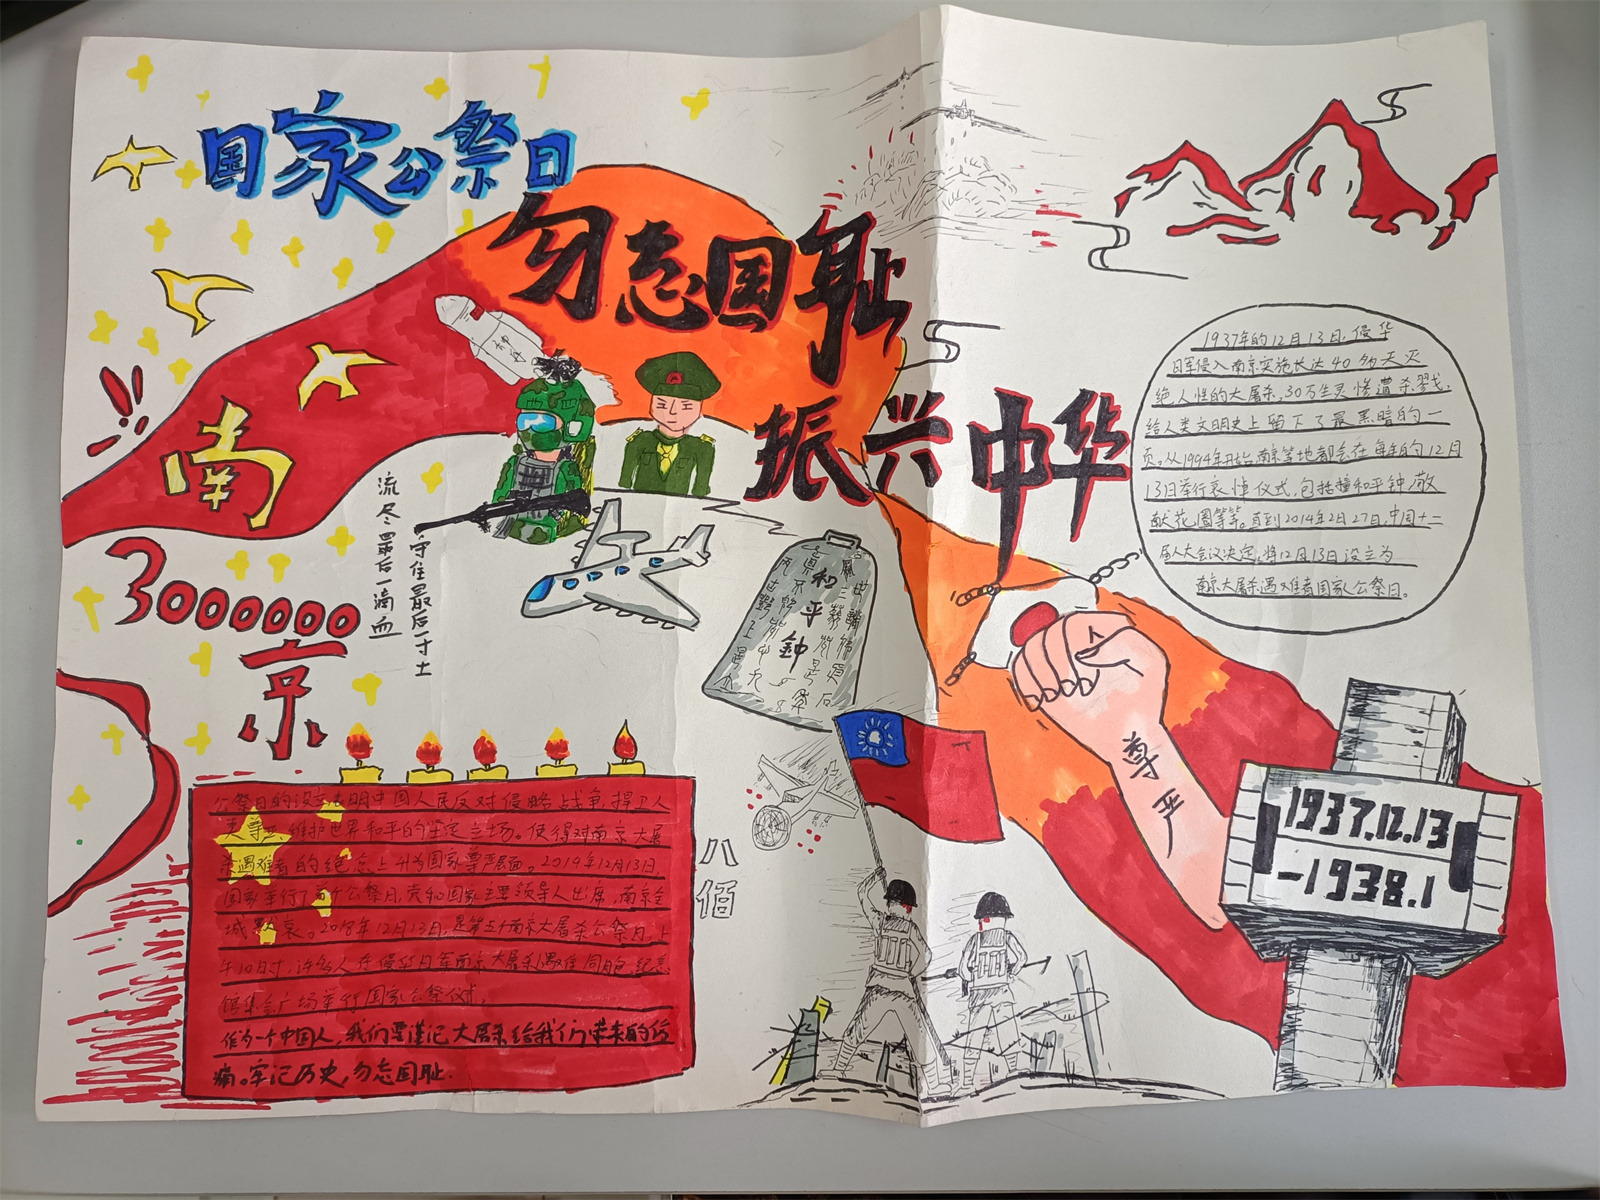 国家公祭日
勿忘国耻
振兴中华
南
3000000
京
流尽最后一滴血
守住最后一寸土
和平钟
1937年的12月13日,侵华
日军侵入南京实施长达40多天灭
绝人性的大屠杀,30万生灵惨遭杀戮,
给人类文明史上留下了最黑暗的一
页。从1994年开始,南京等地都会在每年的12月
13日举行哀悼仪式,包括撞和平钟、敬
献花圈等等。直到2014年2月27日,中国十二
届人大会议决定,将12月13日设立为
南京大屠杀遇难者国家公祭日。
尊严
1937.12.13
-1938.1
八佰
公祭日的设立表明中国人民反对侵略战争,捍卫人
类尊严,维护世界和平的坚定立场。使得对南京大屠
杀遇难者的纪念上升为国家尊严层面。2014年12月13日,
国家举行了首个公祭日,党和国家主要领导人出席,南京全
城默哀。2018年12月13日,是第五个南京大屠杀公祭日,上
午10时,许多人在侵华日军南京大屠杀遇难同胞纪念
馆集会广场举行国家公祭仪式。
作为一个中国人,我们要谨记大屠杀给我们带来的伤
痛。牢记历史,勿忘国耻.